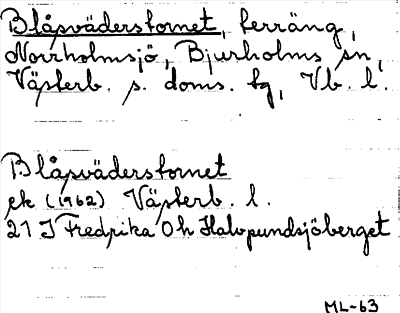 Blåsväderstornet, terräng,
Norrholmsjö, Bjurholms sn,
Västerb. s. doms. tg, Vb. l.
Blåsväderstornet
ek (1962) Västerb. l.
21 J Fredrika 0h Halvpundsjöberget
ML-63